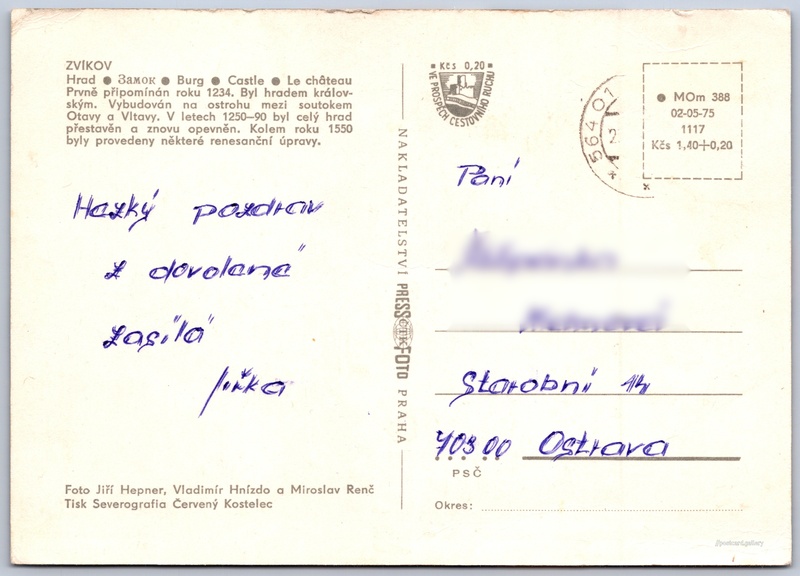 ZVÍKOV
Hrad ● Замок ● Burg ● Castle ● Le château
Prvně připomínán roku 1234. Byl hradem králov-
ským. Vybudován na ostrohu mezi soutokem
Otavy a Vltavy. V letech 1250–90 byl celý hrad
přestavěn a znovu opevněn. Kolem roku 1550
byly provedeny některé renesanční úpravy.
Hezký pozdrav
z dovolené
zasílá
Jirka
Foto Jiří Hepner, Vladimír Hnízdo a Miroslav Renč
Tisk Severografia Červený Kostelec
NAKLADATELSTVÍ PRESSFOTO PRAHA
ČTK
Kčs 0,20
VE PROSPĚCH CESTOVNÍHO RUCHU
564 01
2
MOm 388
02-05-75
1117
Kčs 1,40+0,20
Paní
Starobní 14
703 00 Ostrava
PSČ
Okres: